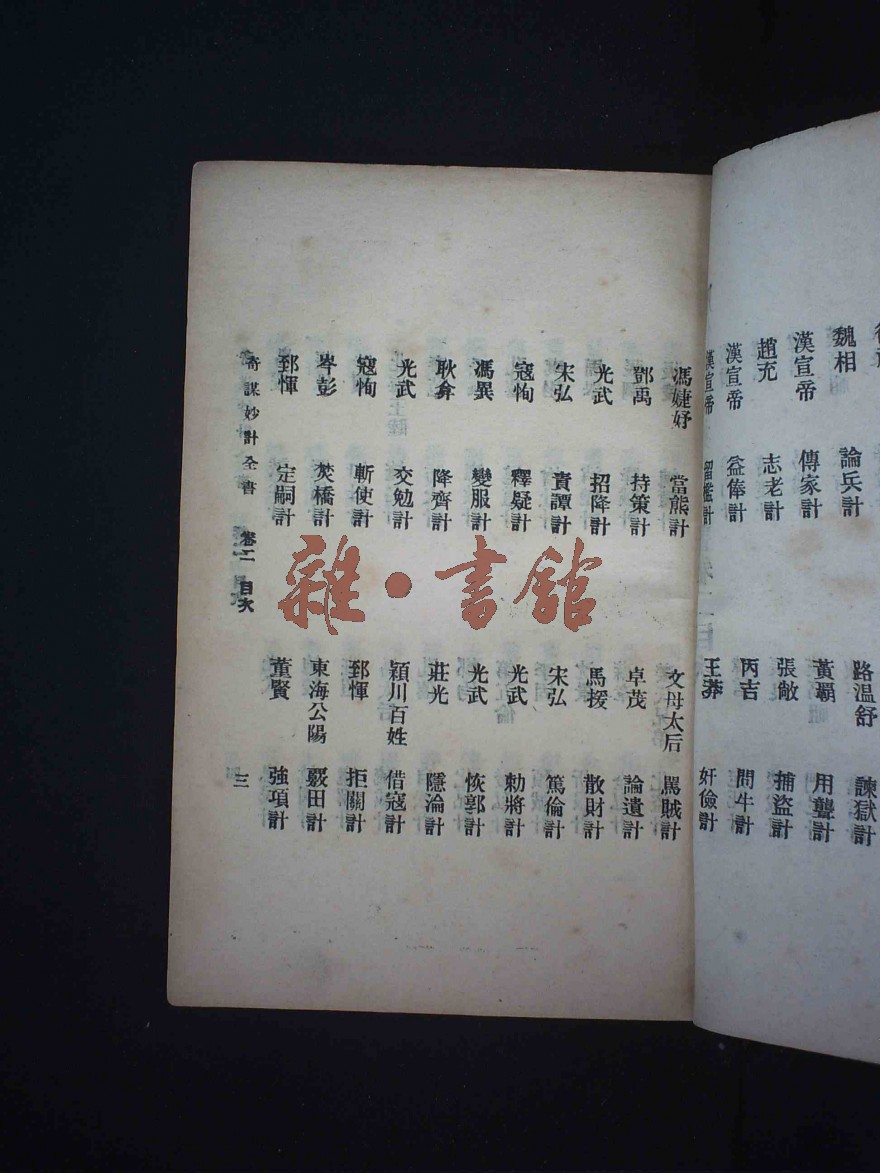 路溫舒 諫獄計
魏相 論兵計
黃霸 用聾計
漢宣帝 傳家計
張敞 捕盜計
趙充 志老計
丙吉 問牛計
漢宣帝 益俸計
王莽 奸儉計
漢宣帝 計
馮婕妤 當熊計
文母太后 罵賊計
鄧禹 持策計
卓茂 論遺計
光武 招降計
馬援 散財計
宋弘 責譚計
宋弘 篤倫計
寇恂 釋疑計
光武 勅將計
馮異 變服計
光武 恢郭計
耿弇 降齊計
莊光 隱淪計
光武 交勉計
穎川百姓 借寇計
寇恂 斬使計
郅惲 拒關計
岑彭 焚橋計
東海公陽 覈田計
郅惲 定嗣計
董賢 強項計
奇謀妙計全書 卷二 目次 三
雜·書館